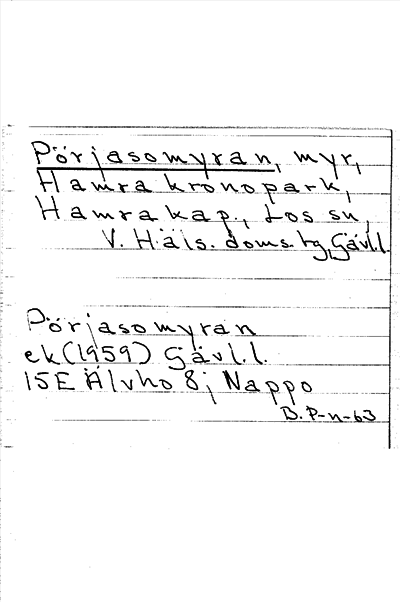 Pörjasomyran, myr,
Hamra kronopark,
Hamra kap., Los sn,
V. Häls. doms. hg, Gävl.l.
Pörjasomyran
ek (1959) Gävl.l.
15E Älvho 8j Nappo
B. P-n-63